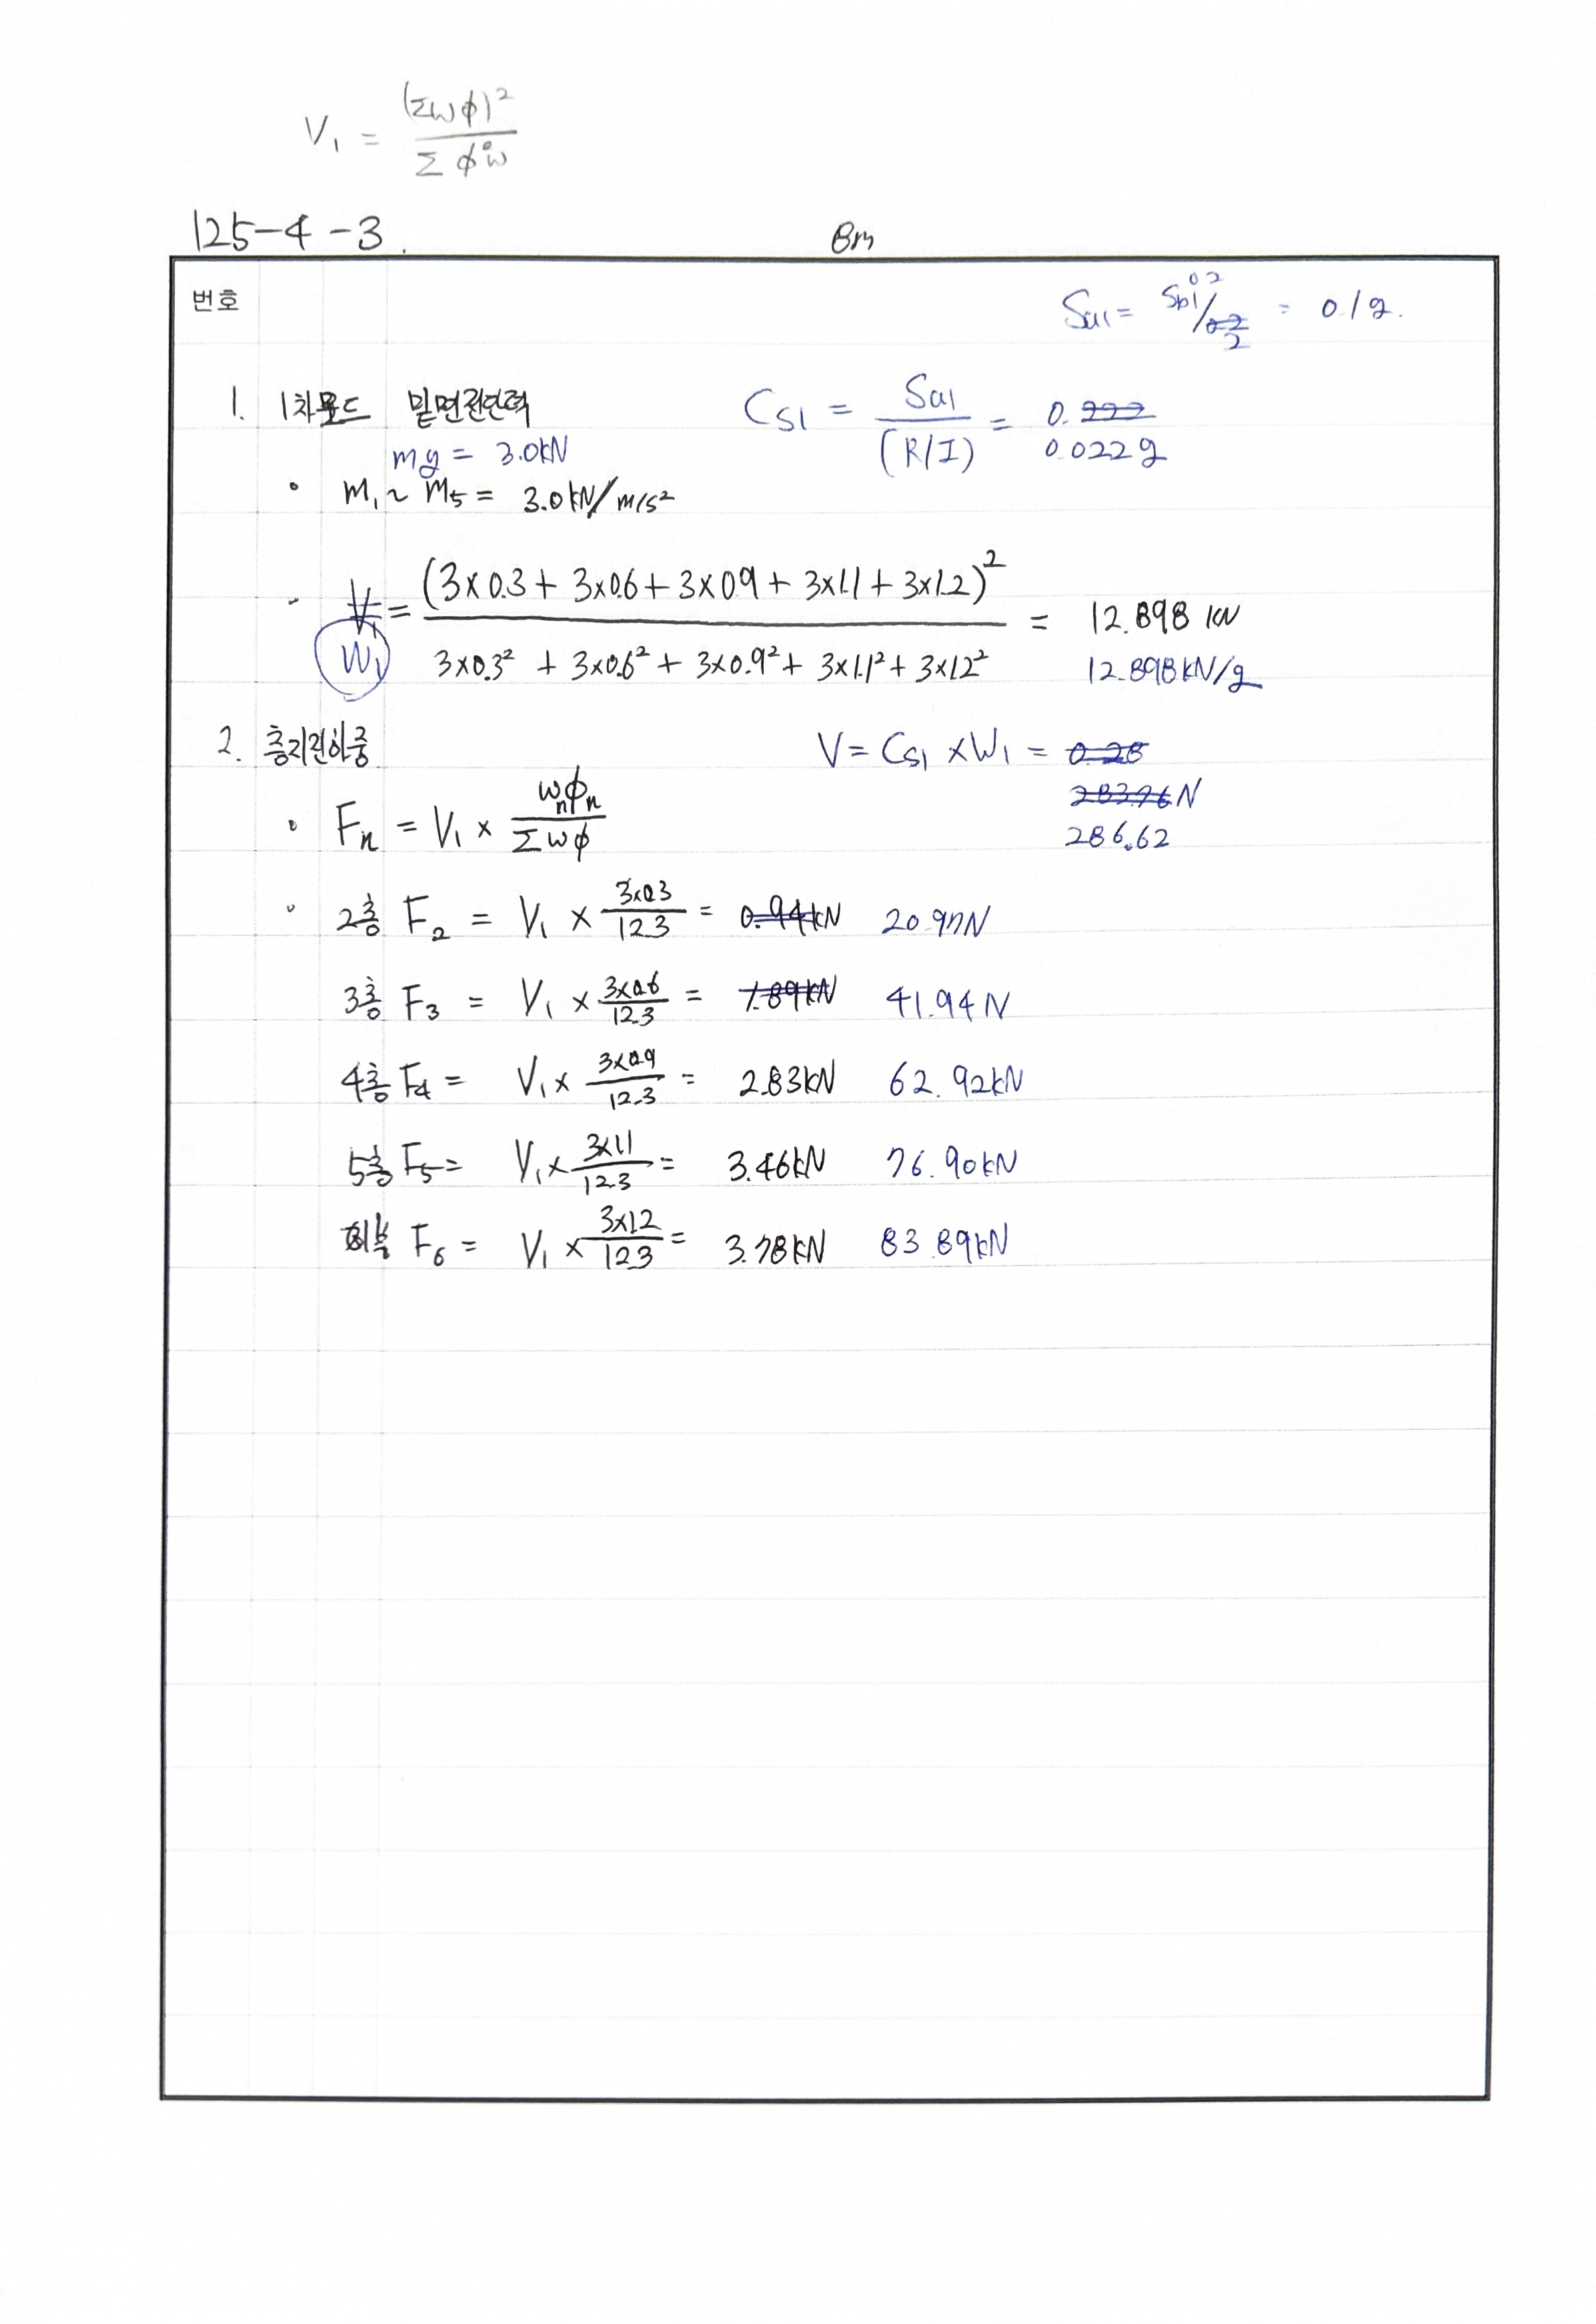 V₁ = (Σwϕ)² / Σϕ²w
125-4-3.
8m
번호
Sa1 = SD1^0.2 / 2 = 0.1g.
1. 1차모드 밑면전단력
CS1 = Sa1 / (R/I) = 0.222
0.0222g
mg = 3.0kN
• m₁ ~ m₅ = 3.0kN/m/s²
- V₁ = (3×0.3 + 3×0.6 + 3×0.9 + 3×1.1 + 3×1.2)² / 3×0.3² + 3×0.6² + 3×0.9² + 3×1.1² + 3×1.2² = 12.898 kN
W₁ 12.898kN/g
2. 층지진하중
V = CS1 × W₁ = 0.28
283.76N
286.62
• Fn = V₁ × wnϕn / Σwϕ
• 2층 F₂ = V₁ × 3×0.3 / 12.3 = 0.94kN 20.97N
3층 F₃ = V₁ × 3×0.6 / 12.3 = 1.89kN 41.94N
4층 F₄ = V₁ × 3×0.9 / 12.3 = 2.83kN 62.92kN
5층 F₅ = V₁ × 3×1.1 / 12.3 = 3.46kN 76.90kN
F₆ = V₁ × 3×1.2 / 12.3 = 3.78kN 83.89kN